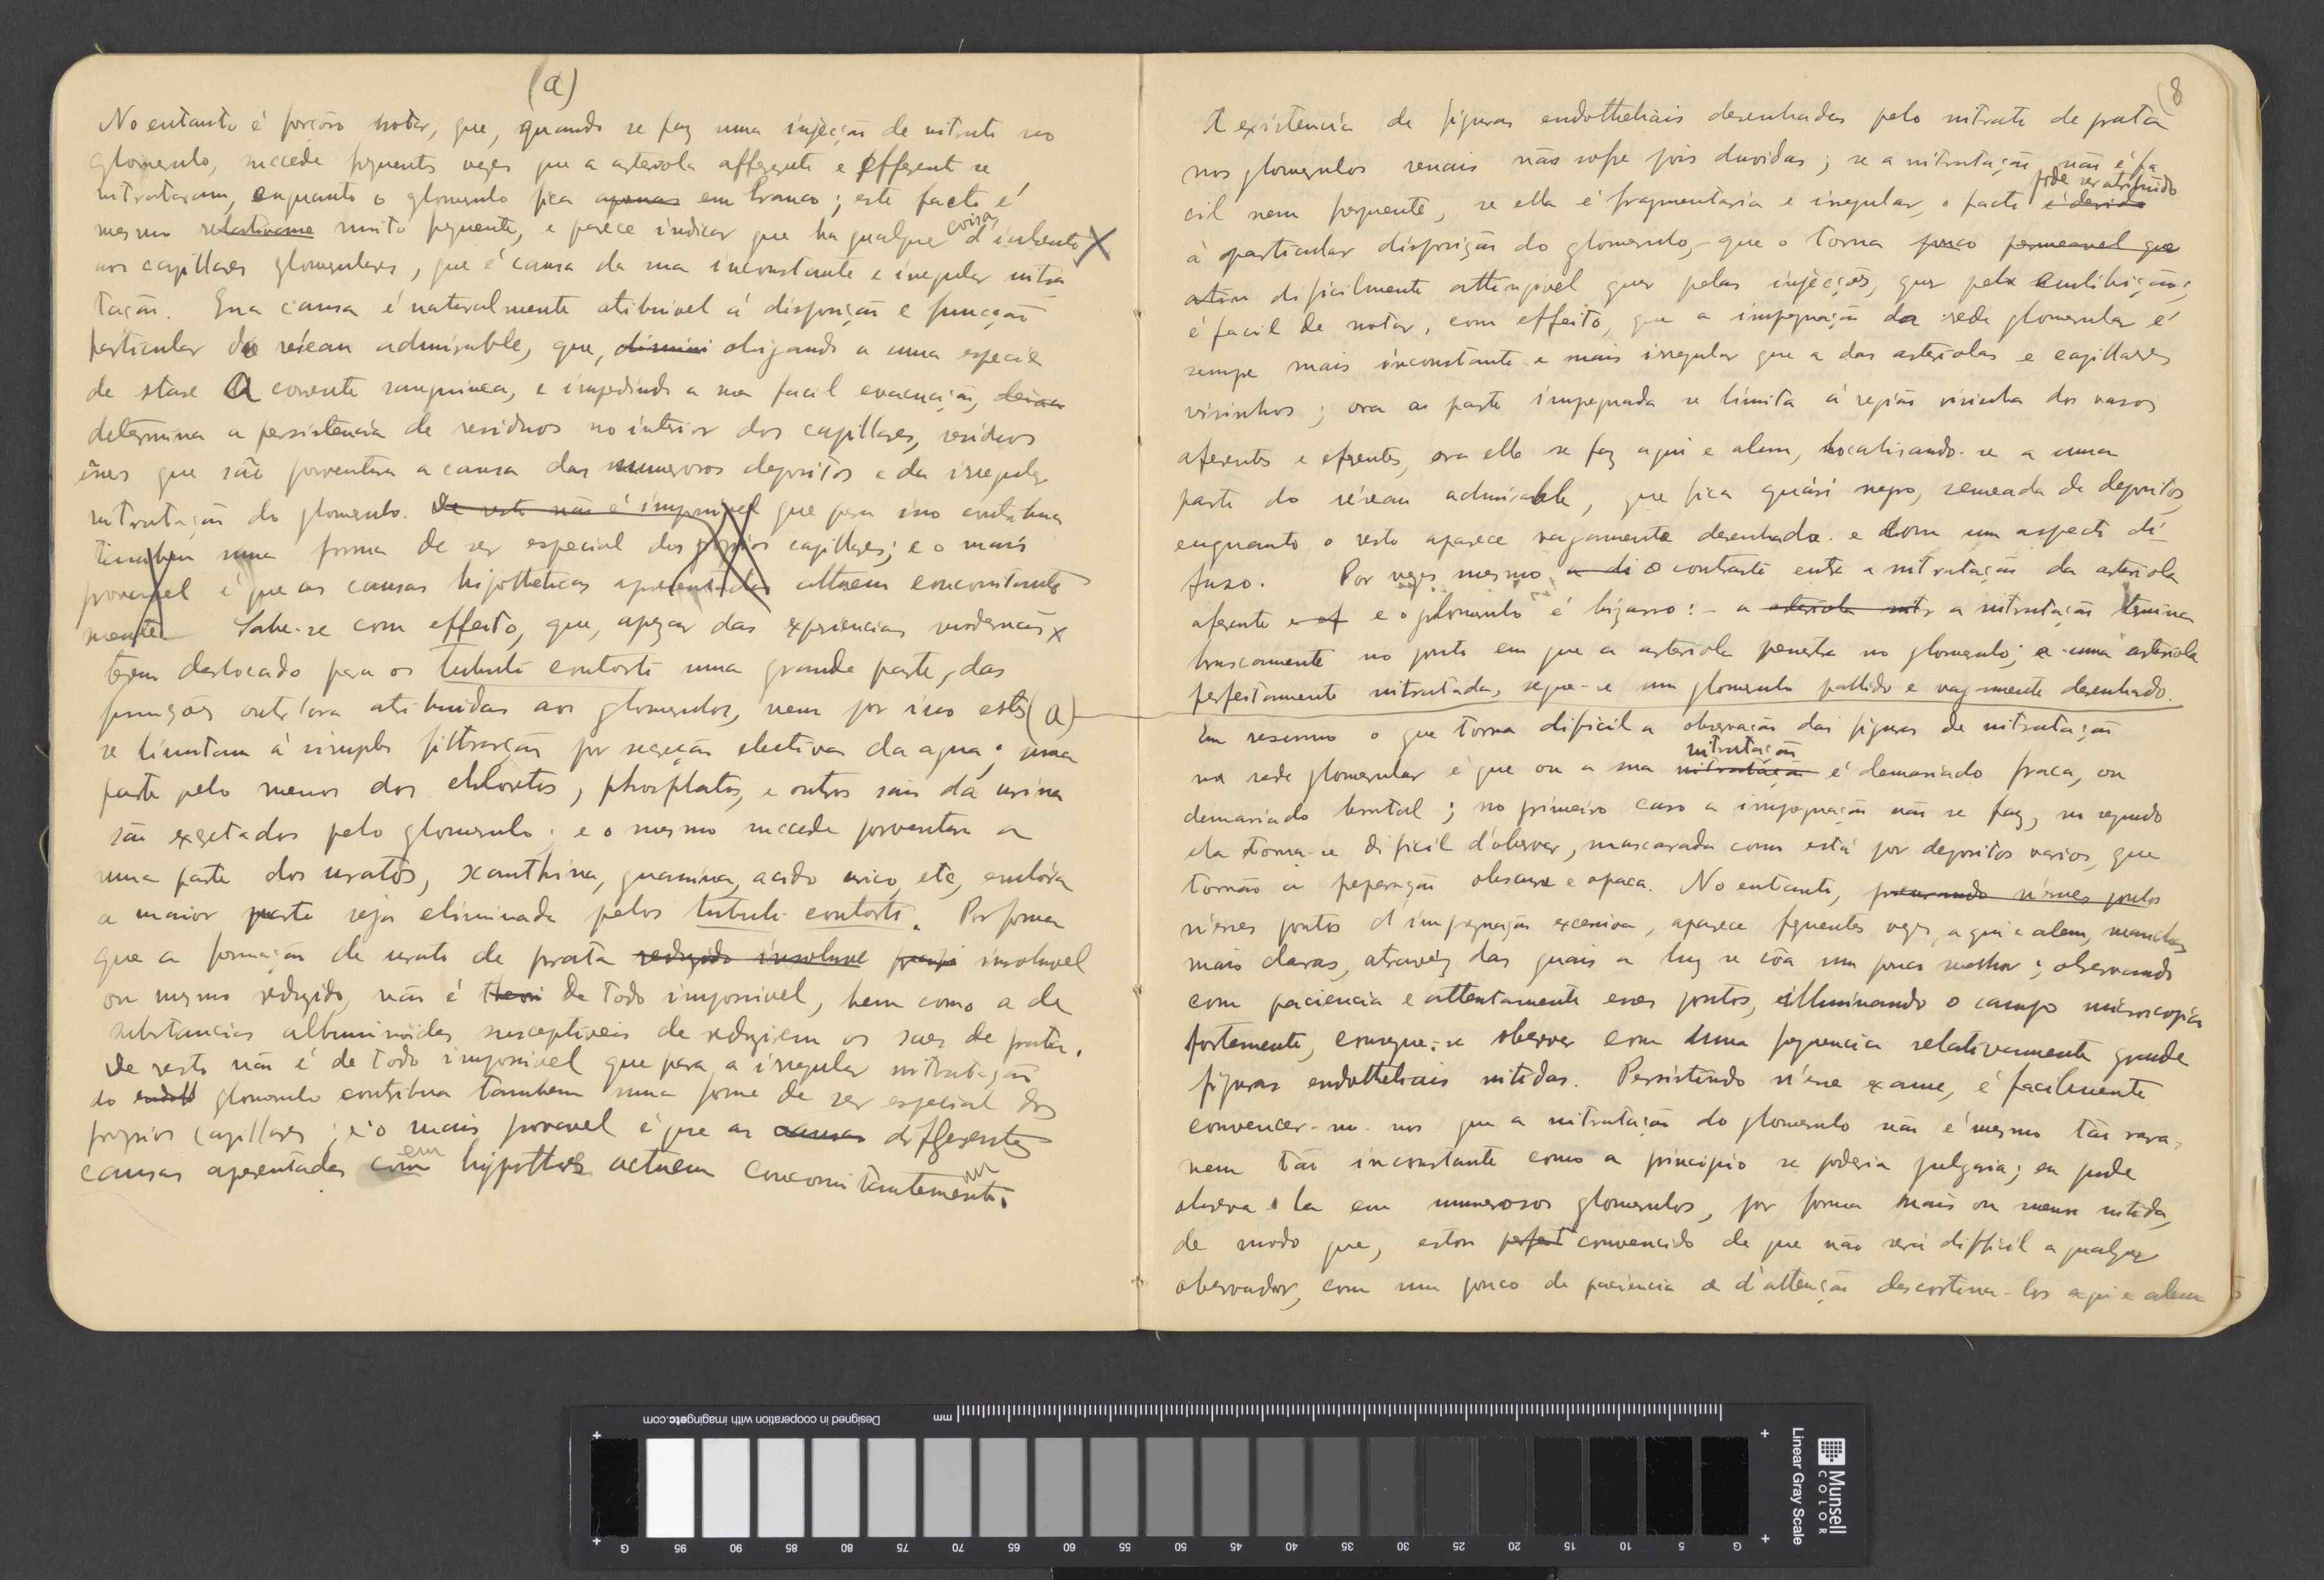 (a)
No entanto é forçoso notar, que, quando se faz uma injecção de nitrato no
glomerulo, succede frequentes vezes que a arteriola afferente e efferente se
nitrataram, enquanto o glomerulo fica apenas em branco; este facto é
mesmo relativame muito frequente, e parece indicar que ha qualquer coisa d'inherente
aos capillares glomerulares, que é causa da sua inconstante e irregular nitra
tação. Essa causa é naturalmente atribuivel á disposição e funcção
particular do réseau admirable, que, diminui obrigando a uma especie
de stase a corrente sanguinea, e impedindo a sua facil evacuação, deixa
determina a persistencia de residuos no interior dos capillares, residuos
esses que são porventura a causa dos numerosos depositos e da irregular
nitratação do glomerulo. De resto não é impossivel que para isso contribua
tambem uma forma de ser especial dos proprios capillares; e o mais
provavel é que as causas hipotheticas apresentadas actuem concomitante
mente. Sabe-se com effeito, que, apezar das experiencias modernas
terem deslocado para os tubuli contorti uma grande parte, das
funções outr'ora atribuidas aos glomerulos, nem por isso estes (a)
se limitam á simples filtração por secreção electiva da agua; uma
parte pelo menos dos chloretos, phosphatos, e outros sais da urina
são excretados pelo glomerulo; e o mesmo succede porventura a
uma parte dos uratos, xanthina, guanina, acido urico, etc, embóra
a maior parte seja eliminada pelos tubuli contorti. Por forma
que a formação de urato de prata reduzido insoluvel insoluvel
ou mesmo reduzido, não é de todo impossivel, bem como a de
substancias albuminóides susceptiveis de reduzirem os saes de prata.
De resto não é de todo impossivel que para a irregular nitratação
do glomerulo contribua tambem uma forma de ser especial dos
proprios capillares; e o mais provavel é que as causas differentes
causas apresentadas com em hypotheses actuem concomitantemente.
8
A existencia de figuras endotheliais desenhadas pelo nitrato de prata
nos glomerulos renais não sofre pois duvidas; se a nitratação não é fa
cil nem frequente, se ella é fragmentaria e irregular, o facto é devido pode ser atribuido
á particular disposição do glomerulo, que o torna pouco permeavel que
dificilmente attingivel quer pelas injecções, quer pela embibição;
é facil de notar, com effeito, que a impregnação da rede glomerular é
sempre mais inconstante e mais irregular que a das arteriolas e capillares
visinhos; ora a parte impregnada se limita á região visinha dos vasos
aferentes e eferentes, ora ella se faz aqui e alem, localisando-se a uma
parte do réseau admirable, que fica quási negro, semeada de depositos,
enquanto o resto aparece vagamente desenhado e com um aspecto di
fuso. Por vezes mesmo a di o contraste entre a nitratação da arteriola
aferente e ef e o glomerulo é bizarro: - a arteriola nitr a nitratação termina
bruscamente no ponto em que a arteriola penetra no glomerulo; a uma arteriola
perfeitamente nitratada, segue-se um glomerulo pallido e vagamente desenhado.
Em resumo o que torna dificil a observação das figuras de nitratação
na rede glomerular é que ou a sua nitratação nitratação é demasiado fraca, ou
demasiado brutal; no primeiro caso a impregnação não se faz, no segundo
ela torna-se dificil d'observar, mascarada como está por depositos varios, que
tornão a preparação obscura e opaca. No entanto, procurando n'esses pontos
n'esses pontos d'impregnação excessiva, aparece frequentes vezes, aqui e alem, manchas
mais claras, atravéz das quais a luz se côa um pouco melhor; observando
com paciencia e attentamente esses pontos, illuminando o campo microscopico
fortemente, consegue-se observar com uma frequencia relativamente grande
figuras endotheliais nitidas. Persistindo n'esse exame, é facilmente
convencer-mo-nos que a nitratação do glomerulo não é mesmo tão rara,
nem tão inconstante como a principio se poderia julgaria; eu pude
observa-la em numerosos glomerulos, por forma mais ou menos nitida,
de modo que, estou perfeit convencido de que não será difficil a qualquer
observador, com um pouco de paciencia e d'attenção descortina-los aqui e alem
Designed in cooperation with imagingetc.com
mm
G 95 90 85 80 75 70 65 60 55 50 45 40 35 30 25 20 15 10 5 G
Linear Gray Scale
Munsell
COLOR